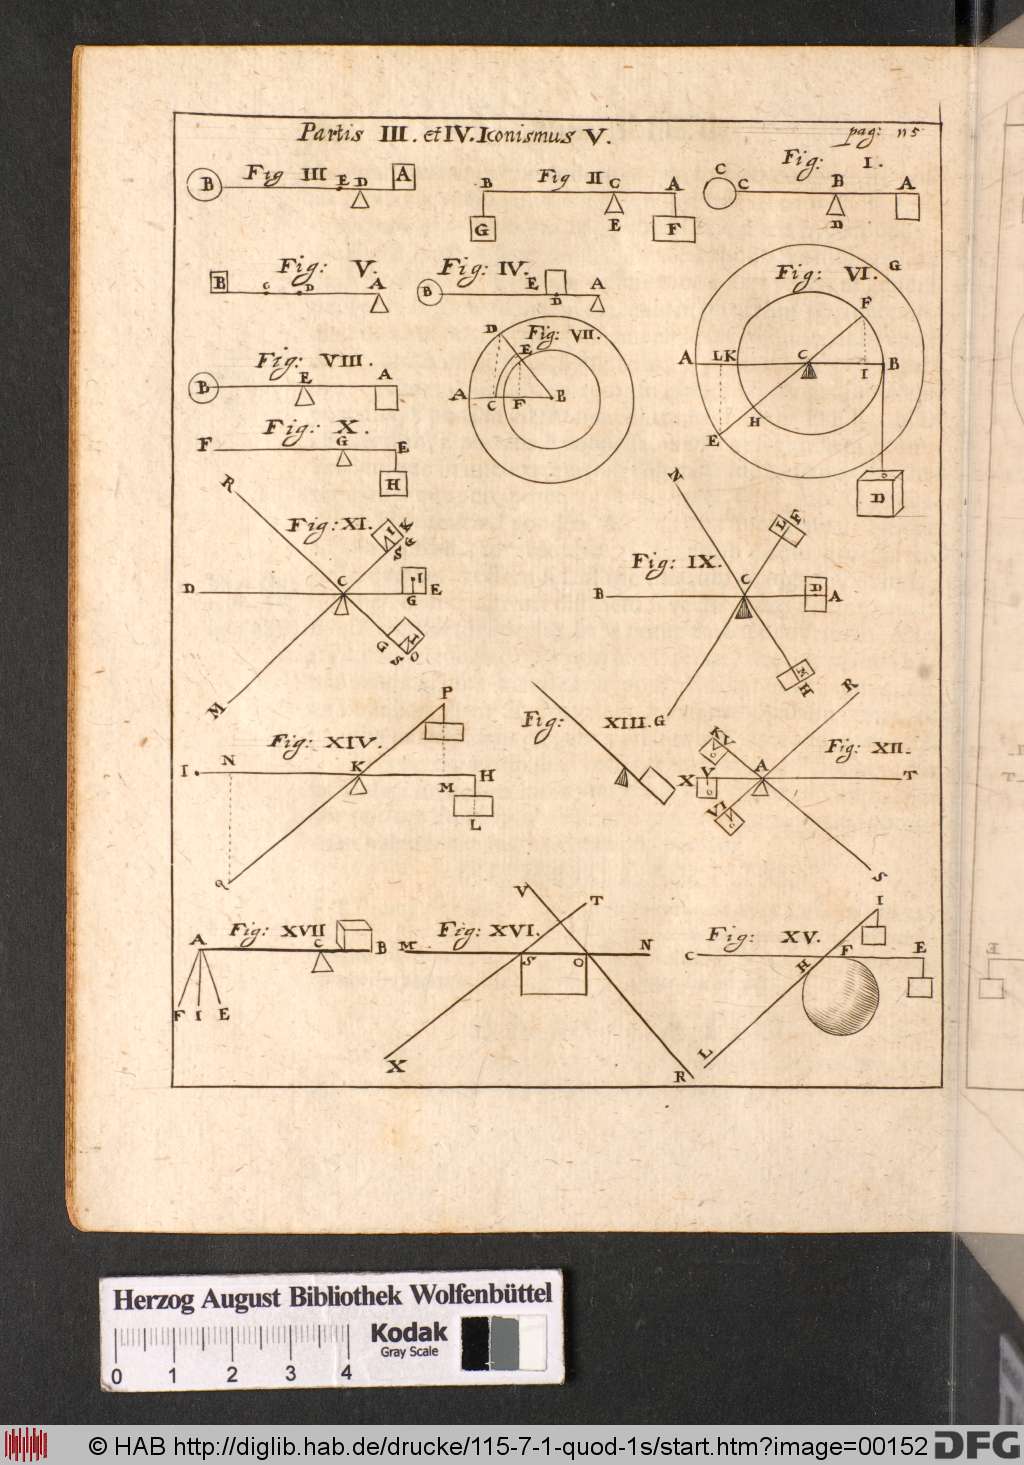 Partis III. et IV. Iconismus V.
pag: 115
Fig III
B E D A
Fig II
B C A
G E F
Fig: I.
C C B A
D
Fig: V.
B C D A
Fig: IV.
B E D A
Fig: VI.
G F
A L K C I B
E H
D
Fig: VII.
D E
A C F B
Fig: VIII.
B E A
Fig: X.
F G E
H
Fig: XI.
R I K
S G
D C I E
G
G I
S O
M
Fig: IX.
N L F
C
B D A
K H
G
Fig: XIV.
P
I N K H
M
L
Q
Fig: XIII.
Fig: XII.
R
K V
O
X V A T
O
VI V
O
S
Fig: XVII
A C B
F I E
Fig: XVI.
V T
M N
S O
X R
Fig: XV.
I
C H F E
L
Herzog August Bibliothek Wolfenbüttel
Kodak
Gray Scale
0 1 2 3 4
© HAB http://diglib.hab.de/drucke/115-7-1-quod-1s/start.htm?image=00152
DFG